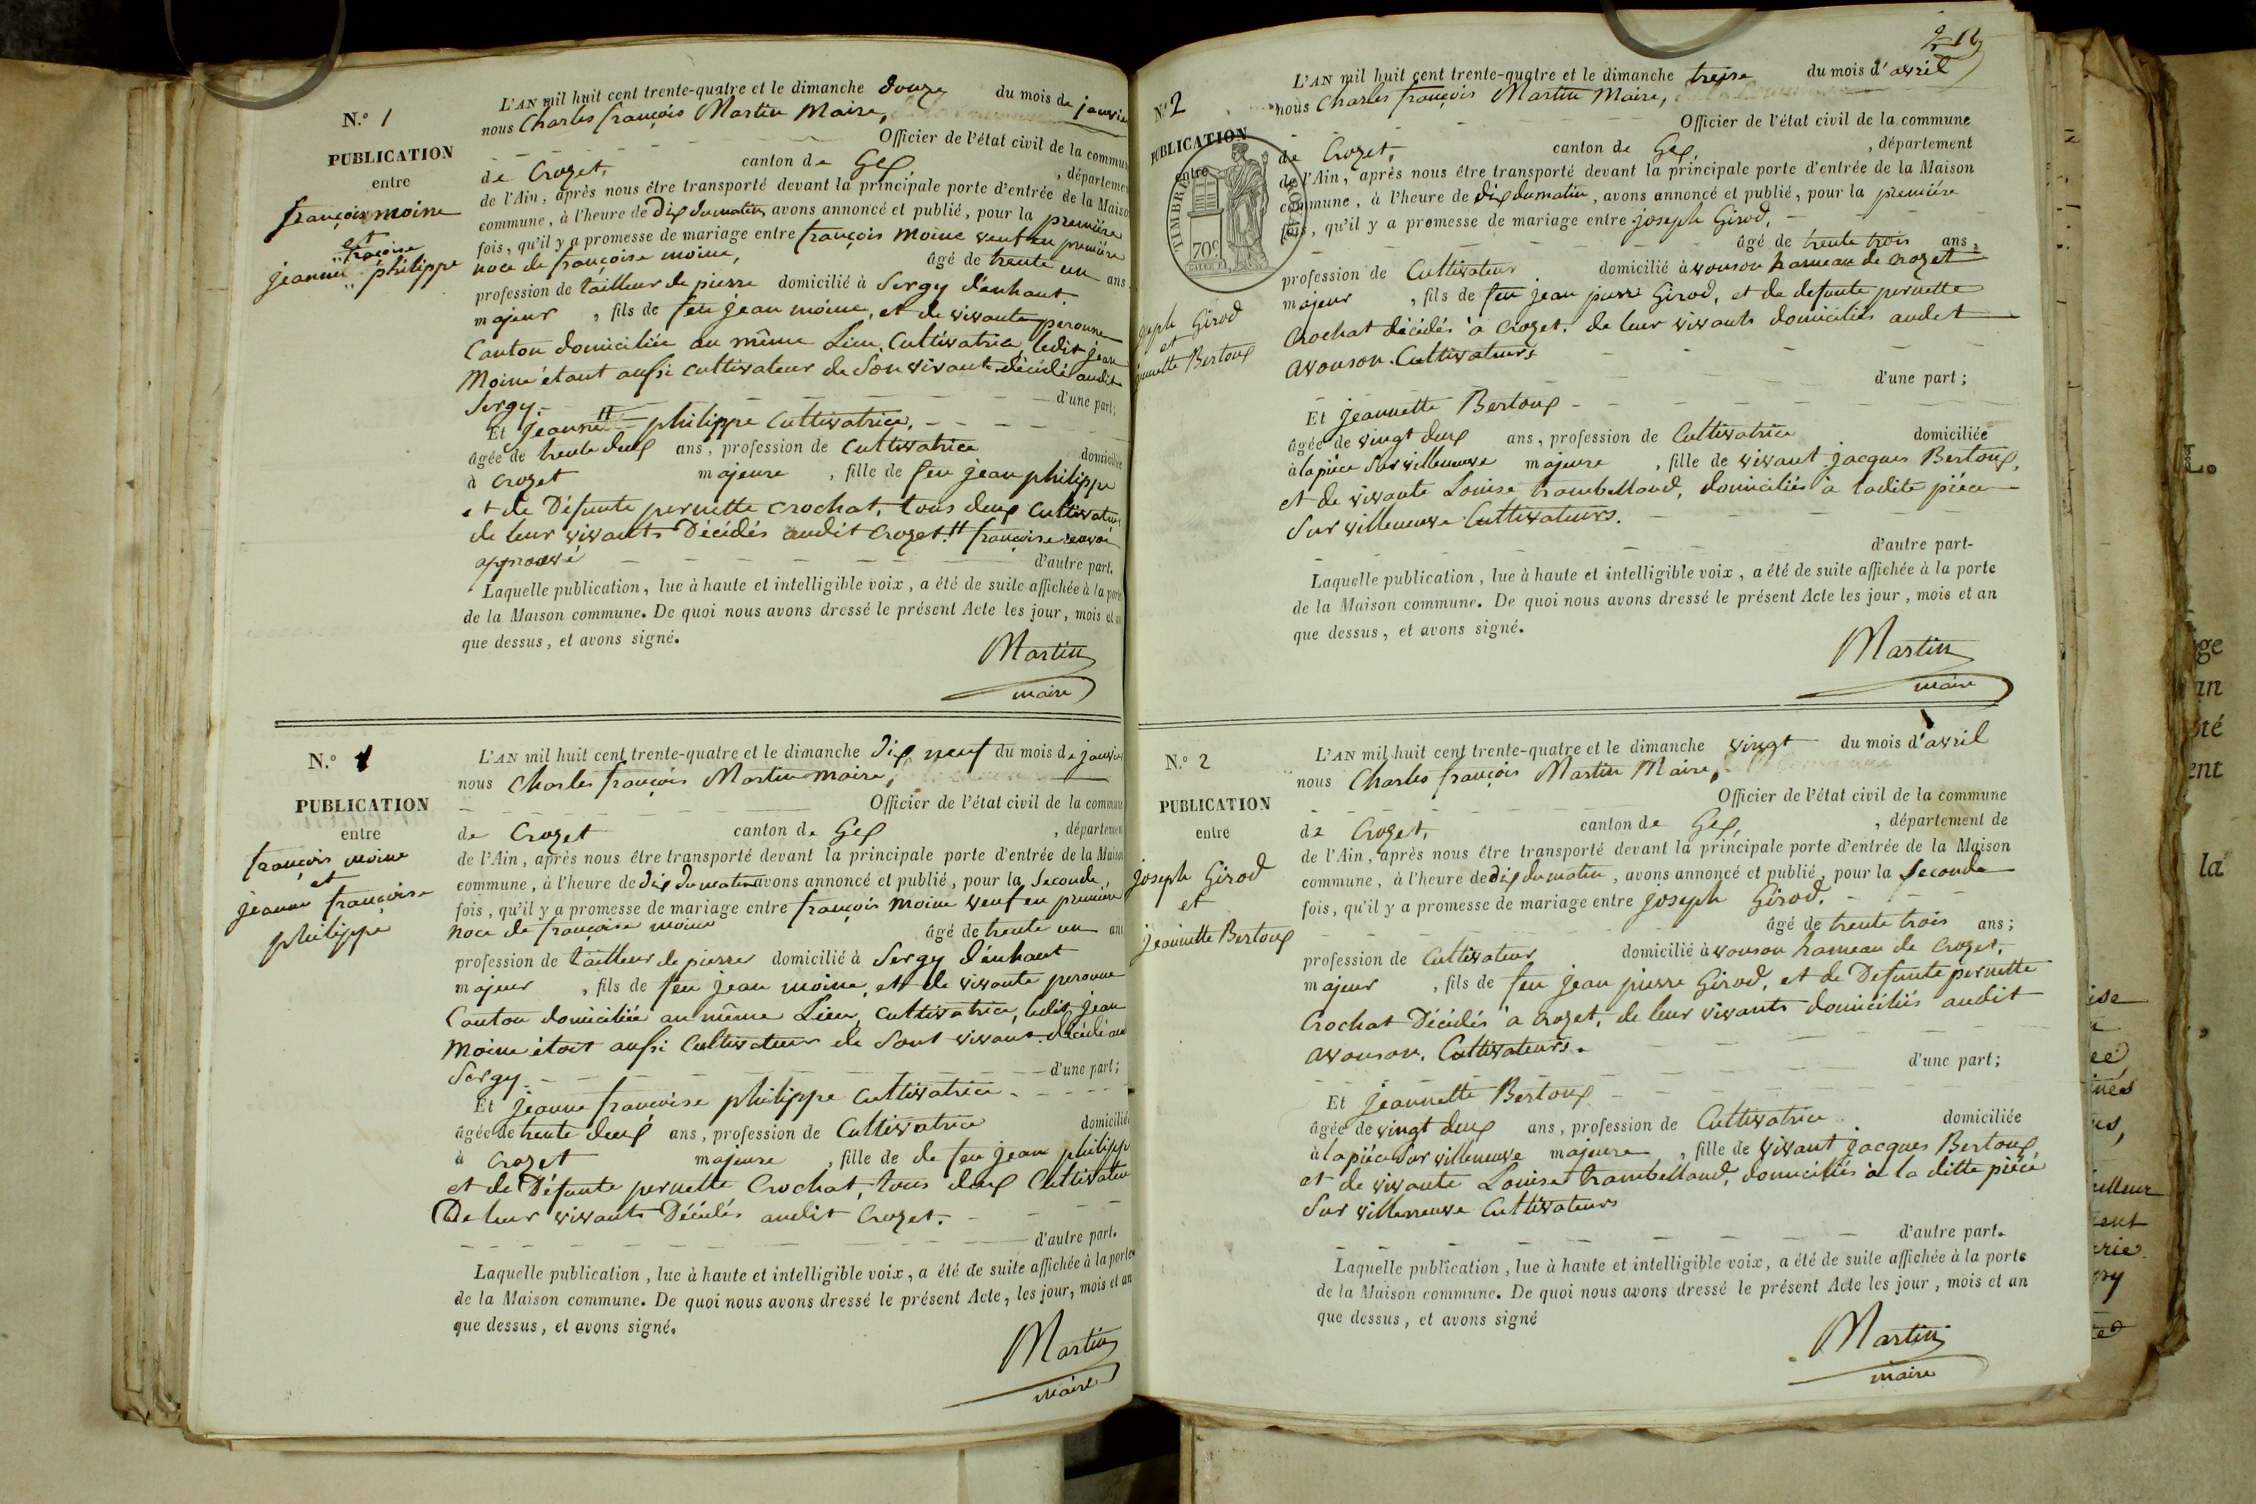 N.º 1
PUBLICATION
entre
françois moine
et
"françoise
jeanne " philippe
L'AN mil huit cent trente-quatre et le dimanche douze du mois de janvier
nous Charles françois Martin Maire,
Officier de l'état civil de la commune
de Crozet, canton de Gex, département
de l'Ain, après nous être transporté devant la principale porte d'entrée de la Maison
commune, à l'heure de dix du matin, avons annoncé et publié, pour la première
fois, qu'il y a promesse de mariage entre françois moine veuf en première
noce de françoise moine, âgé de trente un ans
profession de tailleur de pierre domicilié à Sergy d'enhaut.
majeur, fils de feu jean moine, et de vivante peronne
Canton domiciliée au même Lieu, Cultivatrice, ledit jean
Moine étant aussi cultivateur de Son vivant décédé audit
Sergy. d'une part;
Et jeanne " philippe Cultivatrice,
âgée de trente deux ans, profession de Cultivatrice domiciliée
à Crozet majeure, fille de feu jean philippe
et de Défunte pernette Crochat, tous deux Cultivateurs
de leur vivants Décédés audit Crozet. " françoise renvoi
approuvé d'autre part.
Laquelle publication, lue à haute et intelligible voix, a été de suite affichée à la porte
de la Maison commune. De quoi nous avons dressé le présent Acte les jour, mois et an
que dessus, et avons signé.
Martin
maire
N.º 1
PUBLICATION
entre
françois moine
et
jeanne françoise
philippe
L'AN mil huit cent trente-quatre et le dimanche dix neuf du mois de janvier
nous Charles françois Martin maire,
Officier de l'état civil de la commune
de Crozet canton de Gex, département
de l'Ain, après nous être transporté devant la principale porte d'entrée de la Maison
commune, à l'heure de dix du matin avons annoncé et publié, pour la Seconde,
fois, qu'il y a promesse de mariage entre françois Moine veuf en première
noce de françoise moine âgé de trente un ans
profession de tailleur de pierre domicilié à Sergy d'enhaut
majeur, fils de feu jean moine, et de vivante peronne
Canton domiciliée au même Lieu, Cultivatrice, ledit jean
Moine étoit aussi Cultivateur de Sont vivant. décédé aud
Sergy. d'une part;
Et jeanne françoise philippe Cultivatrice.
âgée de trente deux ans, profession de Cultivatrice domiciliée
à Crozet majeure, fille de de feu jean philippe
et de Défunte pernette Crochat, tous deux Cultivateur
De leur vivants Décédés audit Crozet.
d'autre part.
Laquelle publication, lue à haute et intelligible voix, a été de suite affichée à la porte
de la Maison commune. De quoi nous avons dressé le présent Acte, les jour, mois et an
que dessus, et avons signé.
Martin
maire
N.º 2
PUBLICATION
entre
TIMBRE ROYAL
70c.
joseph Girod
et
jeannette Bertoux
L'AN mil huit cent trente-quatre et le dimanche treize du mois d'avril
nous Charles françois Martin Maire,
Officier de l'état civil de la commune
de Crozet, canton de Gex, département
de l'Ain, après nous être transporté devant la principale porte d'entrée de la Maison
commune, à l'heure de dix du matin, avons annoncé et publié, pour la première
fois, qu'il y a promesse de mariage entre joseph Girod,
âgé de trente trois ans,
profession de Cultivateur domicilié à avouson hameau de crozet
majeur, fils de feu jean pierre Girod, et de defunte pernette
Crochat décédés à Crozet. de leur vivants domiciliés audit
avouson. Cultivateurs
d'une part;
Et jeannette Bertoux
âgée de vingt deux ans, profession de Cultivatrice domiciliée
à la pièce Sur villeneuve majeure, fille de vivant jacques Bertoux,
et de vivante Louise trambelland, domiciliés à ladite pièce
Sur villeneuve Cultivateurs.
d'autre part-
Laquelle publication, lue à haute et intelligible voix, a été de suite affichée à la porte
de la Maison commune. De quoi nous avons dressé le présent Acte les jour, mois et an
que dessus, et avons signé.
Martin
maire
N.º 2
PUBLICATION
entre
joseph Girod
et
jeannette Bertoux
L'AN mil huit cent trente-quatre et le dimanche vingt du mois d'avril
nous Charles françois Martin Maire,
Officier de l'état civil de la commune
de Crozet, canton de Gex, département de
de l'Ain, après nous être transporté devant la principale porte d'entrée de la Maison
commune, à l'heure de dix du matin, avons annoncé et publié, pour la Seconde
fois, qu'il y a promesse de mariage entre joseph Girod.
âgé de trente trois ans;
profession de Cultivateur domicilié à avouson hameau de Crozet,
majeur, fils de feu jean pierre Girod, et de Defunte pernette
Crochat Décédés à Crozet, de leur vivants domiciliés audit
avouson. Cultivateurs.
d'une part;
Et jeannette Bertoux
âgée de vingt deux ans, profession de Cultivatrice domiciliée
à la pièce Sur villeneuve majeure, fille de vivant jacques Bertoux
et de vivante Louise trambelland, domiciliés à la ditte pièce
Sur villeneuve Cultivateurs
d'autre part.
Laquelle publication, lue à haute et intelligible voix, a été de suite affichée à la porte
de la Maison commune. De quoi nous avons dressé le présent Acte les jour, mois et an
que dessus, et avons signé
Martin
maire